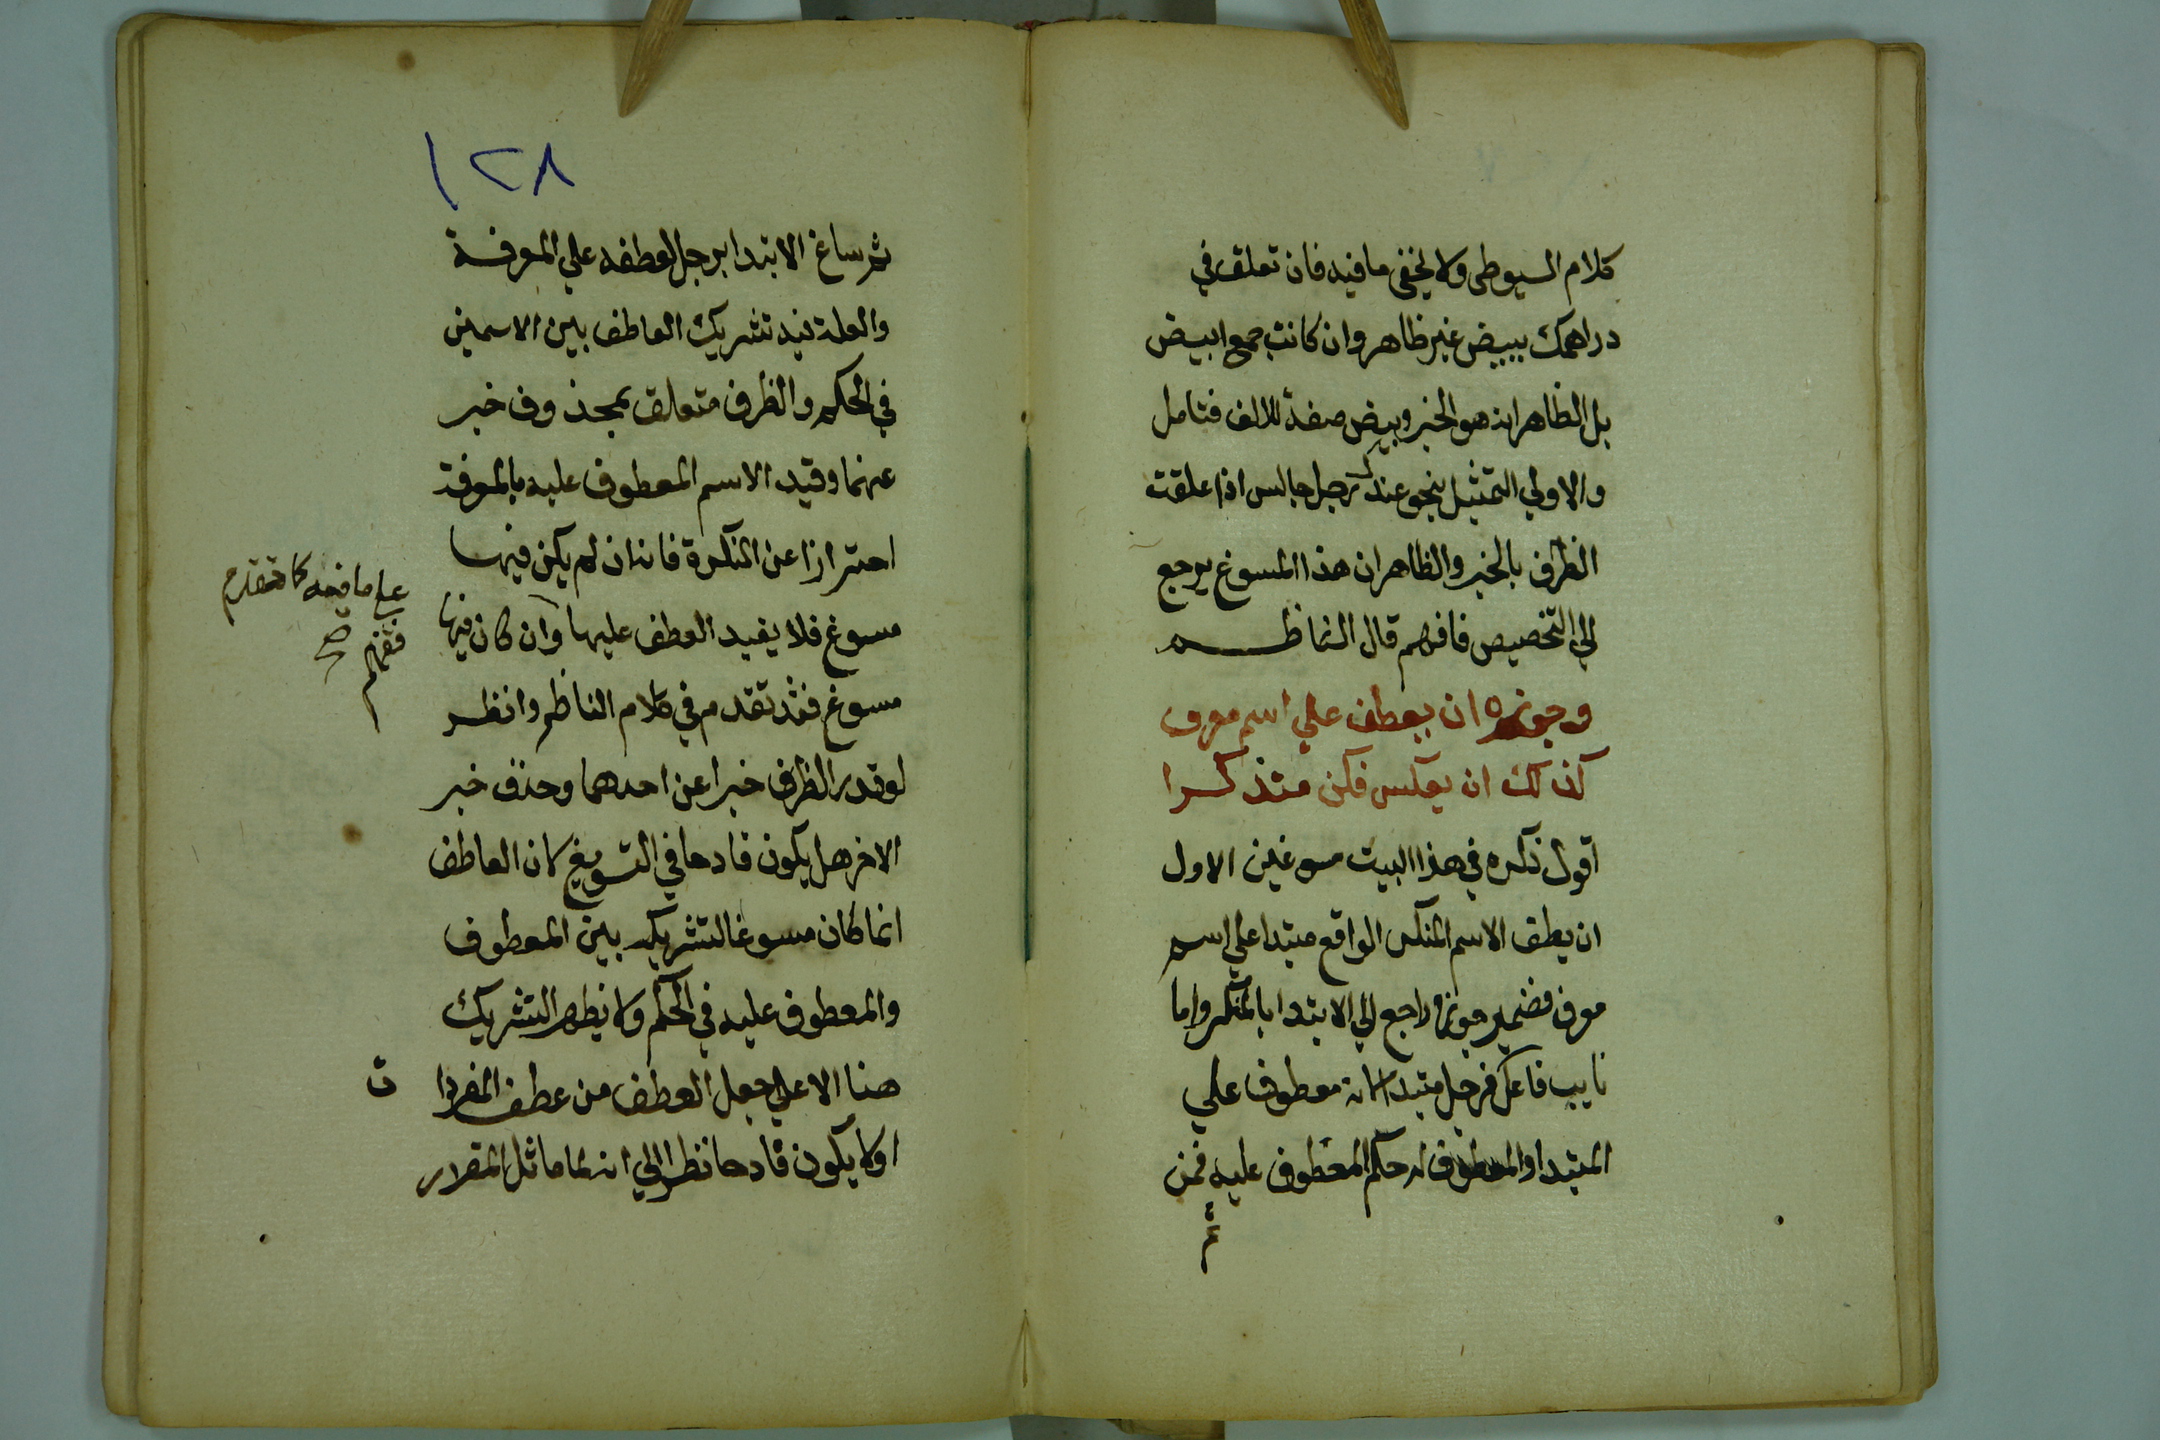 كلام السيوطى ولا يخفى ما فيه فان تعلق في
دراهمك ببيض غير ظاهر وان كانت جمع ابيض
بل الظاهر انه هو الخبر وبيض صفة للالف فتامل
والاولي التمثيل بنحو عندك رجل جالس اذا علقت
الظرف بالخبر والظاهر ان هذا المسوغ يرجع
الي التخصيص فافهم قال الناظم
وجوزه ان يعطف علي اسم معرف
كذلك ان يعكس فكن متذكرا
اقول ذكر في هذا البيت مسوغين الاول
ان يطف الاسم المنكر الواقع مبتدا علي اسم
معرف فضمير جوزه راجع الي الابتدا بالمنكر واما
نايب فاعل فرجل مبتدا لانه معطوف علي
المبتدا والمعطوف له حكم المعطوف عليه فمن
ثم
١٢٨
ثم ساغ الابتدا برجل لعطفه علي المعرفة
والعلة فيه تشريك العاطف بين الاسمين
في الحكم والظرف متعلق بمحذوف خبر
عنهما وقيد الاسم المعطوف عليه بالمعرفة
احترازا عن النكرة فانه ان لم يكن فيها
مسوغ فلا يفيد العطف عليها وان كان فيها
مسوغ فقد تقدم في كلام الناظم وانظر
لو قدر الظرف خبرا عن احدهما وحذف خبر
الاخر هل يكون قادحا في التسويغ لان العاطف
انما كان مسوغا لتشريكه بين المعطوف
والمعطوف عليه في الحكم ولا يظهر التشريك
هنا الا علي جعل العطف من عطف المفردا ت
اولا يكون قادحا نظرا الي انه لما ماثل المقدر
علي ما فيه كما تقدم
فتفهم صح